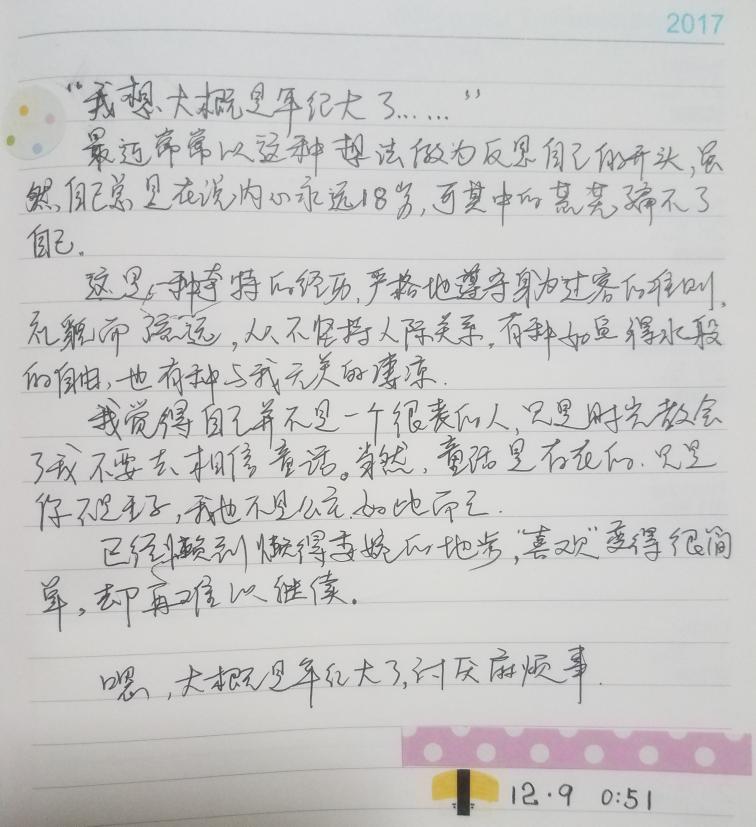 2017
“我想大概是年纪大了……”
最近常常以这种想法做为反思自己的开头,虽
然自己总是在说内心永远18岁,可其中的荒芜骗不了
自己。
这是一种奇特的经历,严格地遵守身为过客的准则,
礼貌而疏远,从不坚持人际关系,有种如鱼得水般
的自由,也有种与我无关的凄凉.
我觉得自己并不是一个很丧的人,只是时光教会
了我不要去相信童话。当然,童话是存在的.只是
你不是王子,我也不是公主.如此而已.
已经懒到懒得委婉的地步,“喜欢”变得很简
单,却再难以继续。
嗯,大概是年纪大了,讨厌麻烦事.
12.9 0:51